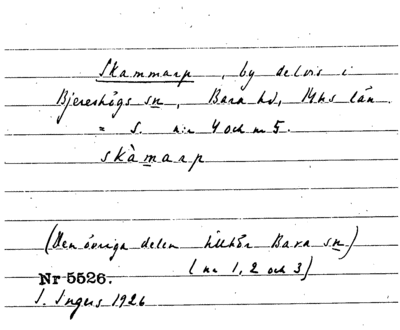 Skammarp, by delvis i
Bjereshögs sn, Bara hd, Mhs län.
= S. n:r 4 och nr 5.
skàmarp
(Den övriga delen tillhör Bara sn)
(nr 1, 2 och 3)
Nr 5526.
I. Ingers 1926